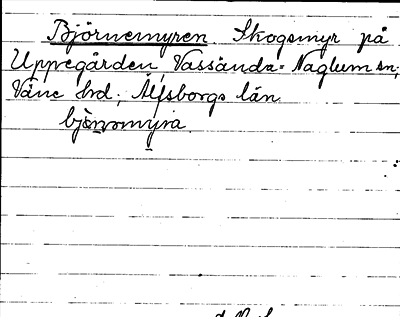 Björnemyren. Skogsmyr på
Uppegården, Vassända-Naglum sn;
Väne hd; Älfsborgs län.